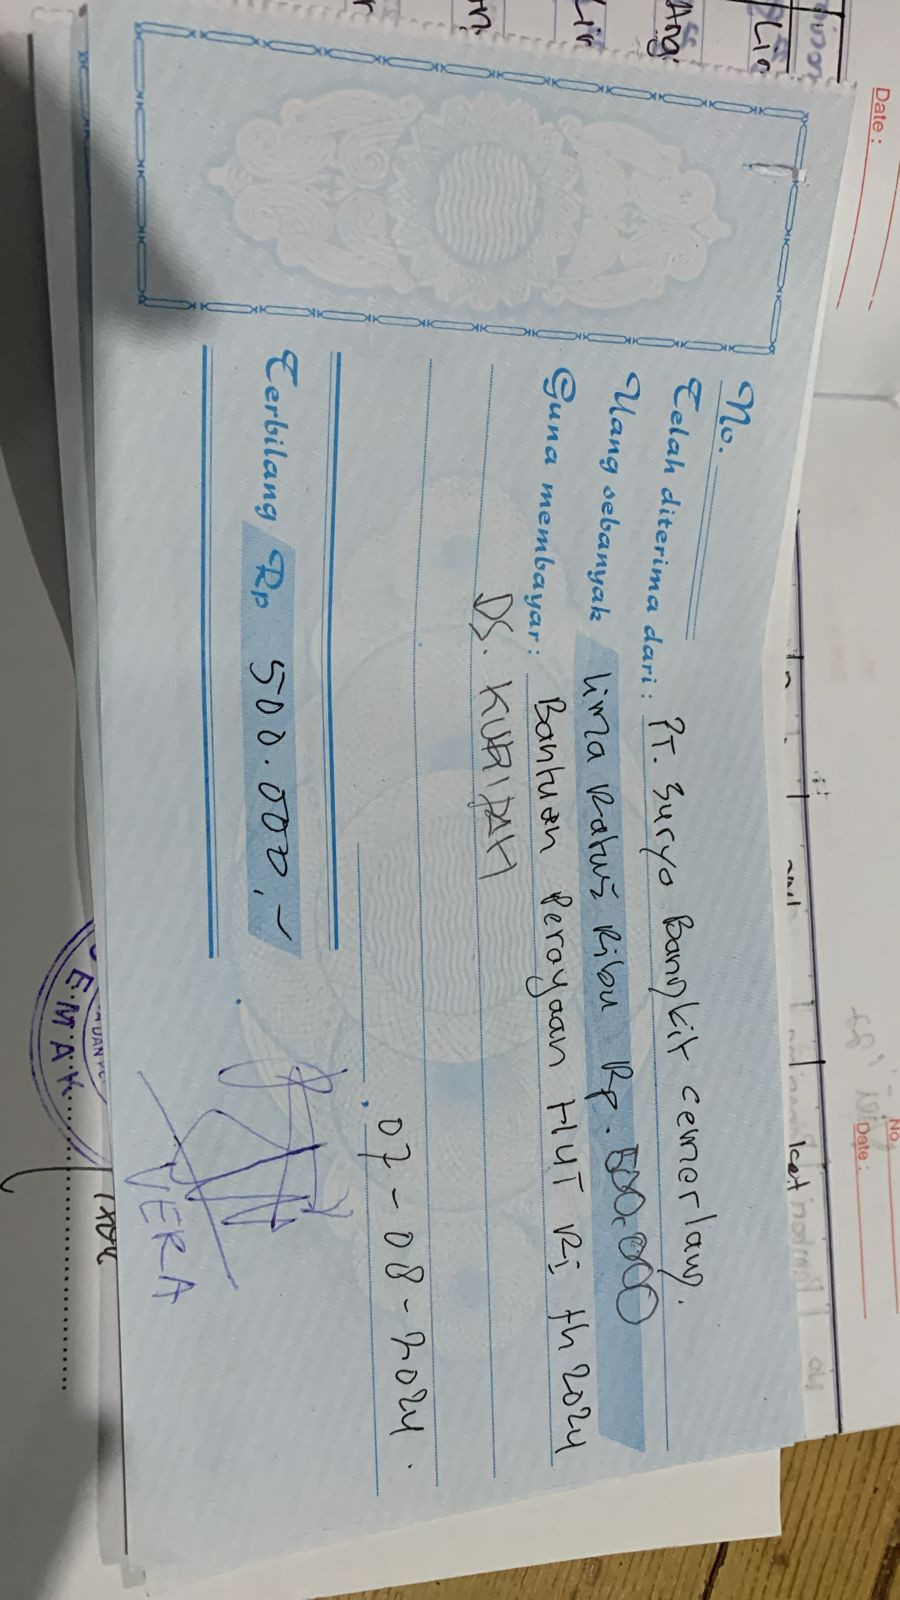 No.
Telah diterima dari: PT. Suryo Bangkit cemerlang.
Uang sebanyak lima Ratus Ribu Rp. 500.000
Guna membayar: Bantuan Perayaan HUT Ri th 2024
DS. KURIPAN
07-08-2024.
Terbilang Rp 500.000,-
VERA
Date:
No.
Date:
EMAK